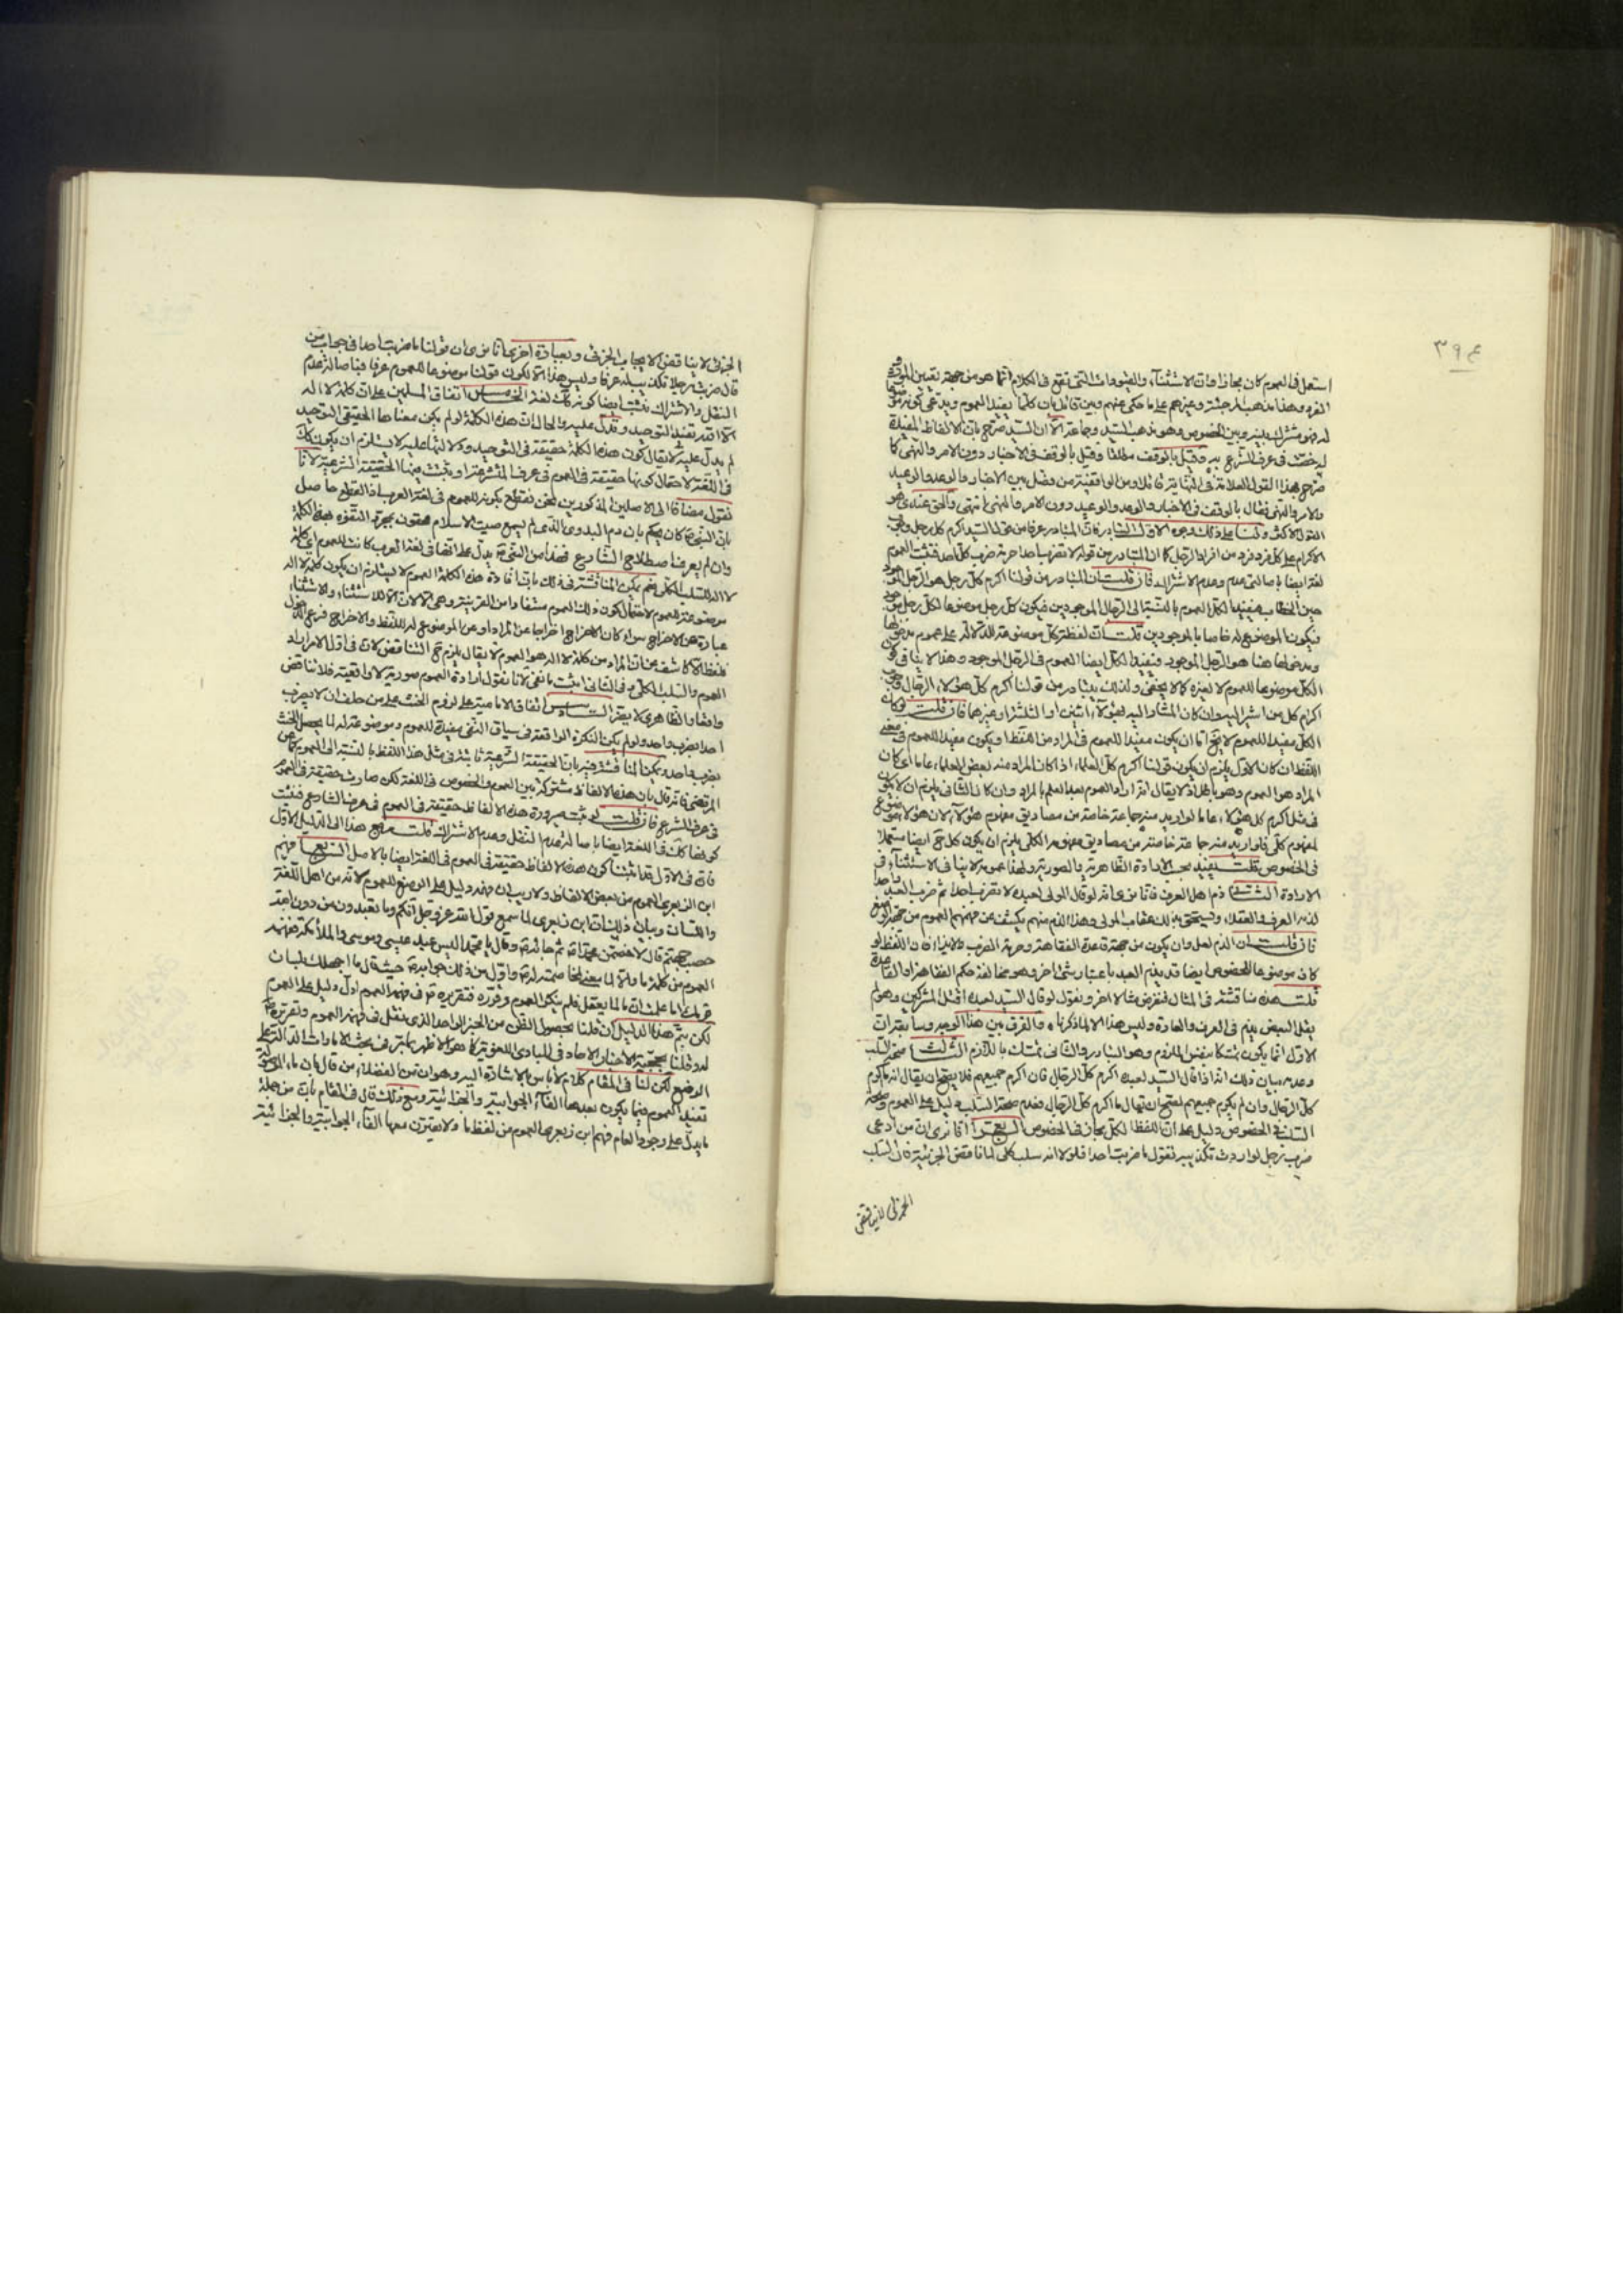 ٣٩٤
استعمل فى العموم كان مجازا فات الاستثناء والقيودات التى تقع فى الكلام انما هو من جهة تعيين الموضوع
المفرد وهذا مذهب المرجئة وغيرهم على ما حكى عنهم وبين قائل بان كلما يفيد العموم ويدعى كونه موضوعا
له فهو مشترك بينه وبين الخصوص وهو مذهب السيد وجماعة الا ان السيد صرح بان الالفاظ المفيدة
له خصت فى عرف الشرع به وقيل بالوقف مطلقا وقيل بالوقف فى الاخبار دون الامر والنهى كما
صرح بهذا القول العلامة فى النهاية قائلا ومن الواقفية من فصل بين الاخبار والوعد والوعيد
والامر والنهى فقال بالوقف فى الاخبار والوعد والوعيد دون الامر والنهى انتهى والحق عندى هو
القول الاكثر ولنا على ذلك وجوه الاول التبادر فان المتبادر عرفا من قول السيد اكرم كل رجل وجوب
الاكرام على كل فرد فرد من افراد الرجل كما ان المتبادر من قوله لا تضرب احدا حرمة ضرب كل احد فثبت العموم
لغة ايضا باصالتى عدم وعدم الاشتراك فان قلت ان المتبادر من قولنا اكرم كل رجل هو الرجل الموجود
حين الخطاب فيفيد الكل العموم بالنسبة الى الرجال الموجودين فيكون كل رجل موضوعا لكل رجل موجود
فيكون الموضوع له خاصا بالموجودين قلت ان لفظة كل موضوعة للدلالة على عموم مدخولها
ومدخولها هنا هو الرجل الموجود فيفيد الكل ايضا العموم فى الرجل الموجود وهذا لا ينافى كون
الكل موضوعا للعموم لا لغيره كما لا يخفى ولذلك يتبادر من قولنا اكرم كل هؤلاء الرجال وجوب
اكرام كل من اشير اليه وان كان المشار اليه بهؤلاء اثنين او الثلثة او غيرها فان قلت لو كان
الكل مفيدا للعموم لا يخ اما ان يكون مفيدا للعموم فى المراد من اللفظ او يكون مفيدا للعموم فى معنى
اللفظ ان كان الاول يلزم ان يكون قولنا اكرم كل العلماء اذا كان المراد منه بعض العلماء عاما اى كان
المراد هو العموم وهو باطل
فى مثل اكرم كل هؤلاء عاما لو اريد منه جماعة خاصة من مصاديق مفهوم هؤلاء لان هؤلاء موضوع
لمفهوم كلى فلو اريد منه جماعة خاصة من مصاديق مفهومه الكلى يلزم ان يكون كل ح ايضا مستعملا
فى الخصوص قلت يفيد بحسب الارادة الظاهرية والصورية ولهذا عمومه لا ينافى الاستثناء فى
الارادة الثانى ذم اهل العرف فانا نرى انه لو قال المولى لعبده لا تضرب احدا ثم ضرب العبد واحدا
لذمه العرف والعقلاء ويستحق بذلك عقاب المولى وهذا الذم منهم يكشف عن فهمهم العموم من جهة الوضع
فان قلت ان الذم لعل وان يكون من جهة قاعدة الفقاهة وحرمة الضرب والايذاء فان اللفظ لو
كان موضوعا للخصوص ايضا قد يذم العبد باعتبار شئ اخر وهو مخالفة حكم الفقاهة والقاعدة
قلت هذه مناقشة فى المثال فنفرض مثالا اخر ونقول لو قال السيد لعبده اقتل المشركين وهو لم
يقتل البعض يذم فى العرف والعادة وليس هذا الا لما ذكرنا والفرق بين هذا الوجه وسابقه ان
الاول انما يكون تمسكا بنفس الملزوم وهو التبادر والثانى تمسك باللازم الثالث صحة السلب
وعدمه بيان ذلك انه اذا قال السيد لعبده اكرم كل الرجال فان اكرم جميعهم فلا يصح ان يقال انه ما اكرم
كل الرجال وان لم يكرم جميعهم لصح ان يقال ما اكرم كل الرجال فعدم صحة السلب دليل على العموم وصحة
السلب فى الخصوص دليل على ان اللفظ الكل مجاز فى الخصوص الرابع انا نرى ان من ادعى
ضرب رجل لو اردت تكذيبه تقول ما ضربت احدا فلولا انه سلب كلى لما ناقض الجزئية فان السلب
الجزئى لا يناقض
الجزئى لا يناقض الايجاب الجزئى وبعبارة اخرى انا نرى ان قولنا ما ضربت احدا فى جواب من
قال ضربت رجلا تكذيب له عرفا وليس هذا الا لكون قولنا موضوعا للعموم عرفا فباصالة عدم
النقل والاشتراك نثبت ايضا كونه كك لغة الخامس اتفاق المسلمين على ان كلمة لا اله
الا الله تفيد التوحيد وتدل عليه والحال ان هذه الكلمة لو لم يكن معناها الحقيقى التوحيد
لم يدل عليه لا يقال كون هذه الكلمة حقيقة فى التوحيد ودلالتها عليه لا يستلزم ان يكون كك
فى اللغة لاحتمال كونها حقيقة فى العموم فى عرف المتشرعة او يثبت بهذا الحقيقة الشرعية لانا
نقول مضافا الى الاصلين المذكورين نحن نقطع بكونه للعموم فى لغة العرب اذ القطع حاصل
بان النبى ص كان يحكم بان دم البدوى الذى لم يسمع صيت الاسلام محقون بمجرد التفوه بهذه الكلمة
وان لم يعرف اصطلاح الشارع فهذا من النبى ص يدل على انها فى لغة العرب كانت للعموم اى كلمة
لا اله للسلب الكلى نعم يمكن المناقشة فى ذلك بان افادة هذه الكلمة العموم لا يستلزم ان يكون كلمة لا اله
موضوعة للعموم لاحتمال كون ذلك العموم مستفادا من القرينة وهى الا لان الا للاستثناء والاستثناء
عبارة عن الاخراج سواء كان الاخراج اخراجا عن المراد او عن الموضوع له اللفظ والاخراج فرع الدخول
فلفظ الا كاشفة عن ان المراد من كلمة لا اله هو العموم لا يقال يلزم ح التناقض لان فى اول الامر اراد
العموم والسلب الكلى وفى الثانى اثبت ما نفى لانا نقول ارادة العموم صورية لا واقعية فلا تناقض
واقعا والظاهرى لا يضر السادس اتفاق الامامية على لزوم الحنث على من حلف ان لا يضرب
احدا بضرب واحد ولو لم يكن النكرة الواقعة فى سياق النفى مفيدة للعموم وموضوعة له لما يحصل الحنث
بضرب واحد ويمكن لنا المناقشة فيه بان الحقيقة الشرعية ثابتة فى مثل هذا اللفظ بالنسبة الى العموم كما عن
المرتضى فانه قال بان هذه الالفاظ مشتركة بين العموم والخصوص فى اللغة لكن صارت حقيقة فى العموم
فى عرف الشرع فان قلت ثبت صيرورة هذه الالفاظ حقيقة فى العموم فى عرف الشارع فثبت
كونها كك فى اللغة ايضا باصالة عدم النقل وعدم الاشتراك قلت مرجع هذا الى الدليل الاول
فان فى الاول قد اثبتنا كون هذه الالفاظ حقيقة فى العموم فى اللغة ايضا بالاصل السابع فهم
ابن الزبعرى العموم من بعض الالفاظ ولا ريب ان فهمه دليل على الوضع للعموم لانه من اهل اللغة
واللسان وبيان ذلك ان ابن زبعرى لما سمع قول الله عز وجل انكم وما تعبدون من دون الله
حصب جهنم قال لاخصمن محمدا ص ثم جائه ص وقال يا محمد اليس عبد عيسى وموسى والملائكة ففهمه
العموم من كلمة ما
قومك اما علمت ان ما لما لا يعقل فلم ينكر العموم وقرره فتقريره ص فى فهمه العموم اول دليل على العموم
لكن يتم هذا الدليل ان قلنا بحصول القطع من الخبر الواحد الذى نقل فى فهمه العموم وتقريره ص
له وقلنا بحجية الاخبار الاحاد فى المبادى اللغوية كما هو الاظهر
الوضع لكن لنا فى المقام كلام لا باس بالاشارة اليه وهو ان من الفضلاء من قال بان ما الموصولة
تفيد العموم فيما يكون بعدها الفاء الجوابية والجزائية ومع ذلك قال فى المقام بان من جملة
ما يدل على وجود العام فهم ابن زبعرى العموم من لفظ ما ولا يقترن معها الفاء الجوابية والجزائية